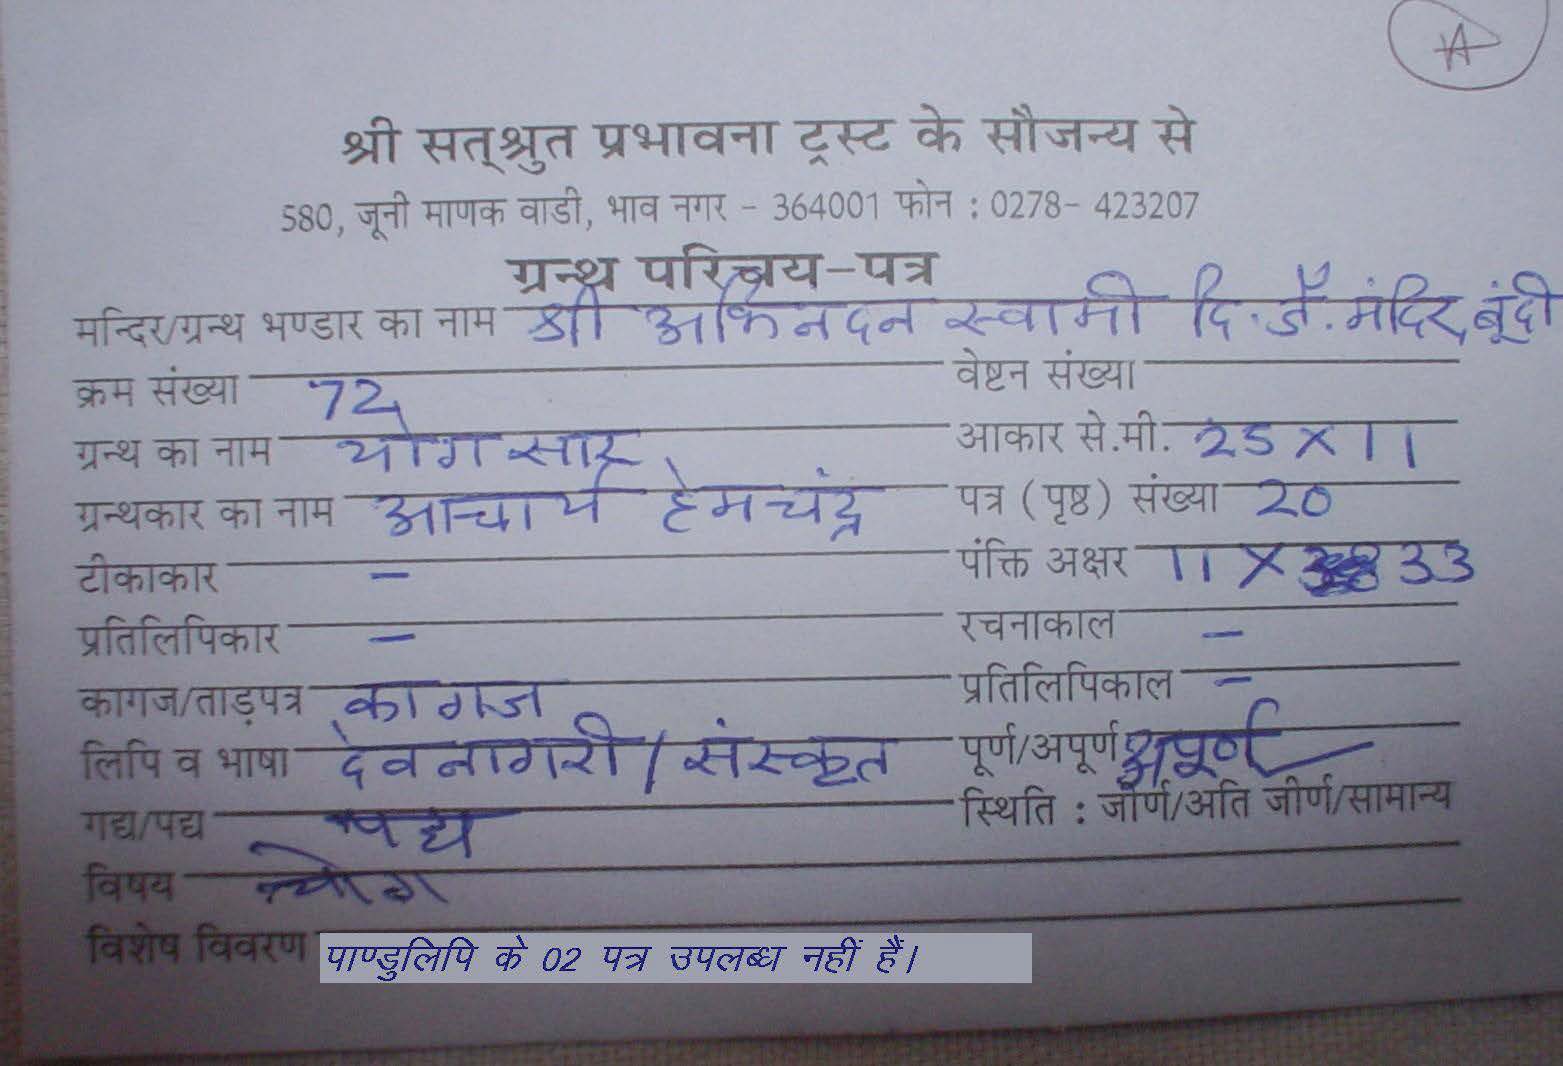 A
श्री सत्श्रुत प्रभावना ट्रस्ट के सौजन्य से
580, जूनी माणक वाडी, भाव नगर - 364001 फोन : 0278- 423207
ग्रन्थ परिचय-पत्र
मन्दिर/ग्रन्थ भण्डार का नाम श्री अभिनदन स्वामी दि. जै. मंदिर, बूंदी
क्रम संख्या 72 वेष्टन संख्या
ग्रन्थ का नाम योग सार आकार से.मी. 25 X 11
ग्रन्थकार का नाम आचार्य हेमचंद्र पत्र (पृष्ठ) संख्या 20
टीकाकार – पंक्ति अक्षर 11 X 33
प्रतिलिपिकार – रचनाकाल –
कागज/ताड़पत्र कागज प्रतिलिपिकाल –
लिपि व भाषा देवनागरी / संस्कृत पूर्ण/अपूर्ण अपूर्ण
गद्य/पद्य पद्य स्थिति : जीर्ण/अति जीर्ण/सामान्य
विषय योग
विशेष विवरण पाण्डुलिपि के 02 पत्र उपलब्ध नहीं हैं।